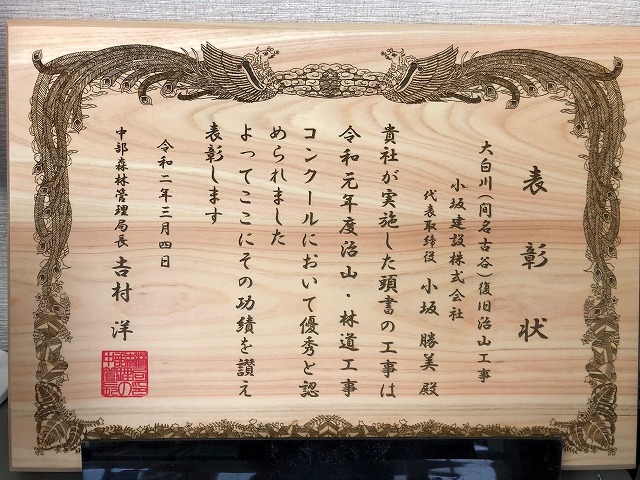 表彰状
大白川(間名古谷)復旧治山工事
小坂建設株式会社
代表取締役 小坂勝美殿
貴社が実施した頭書の工事は
令和元年度治山・林道工事
コンクールにおいて優秀と認
められました
よってここにその功績を讃え
表彰します
令和二年三月四日
中部森林管理局長 吉村洋